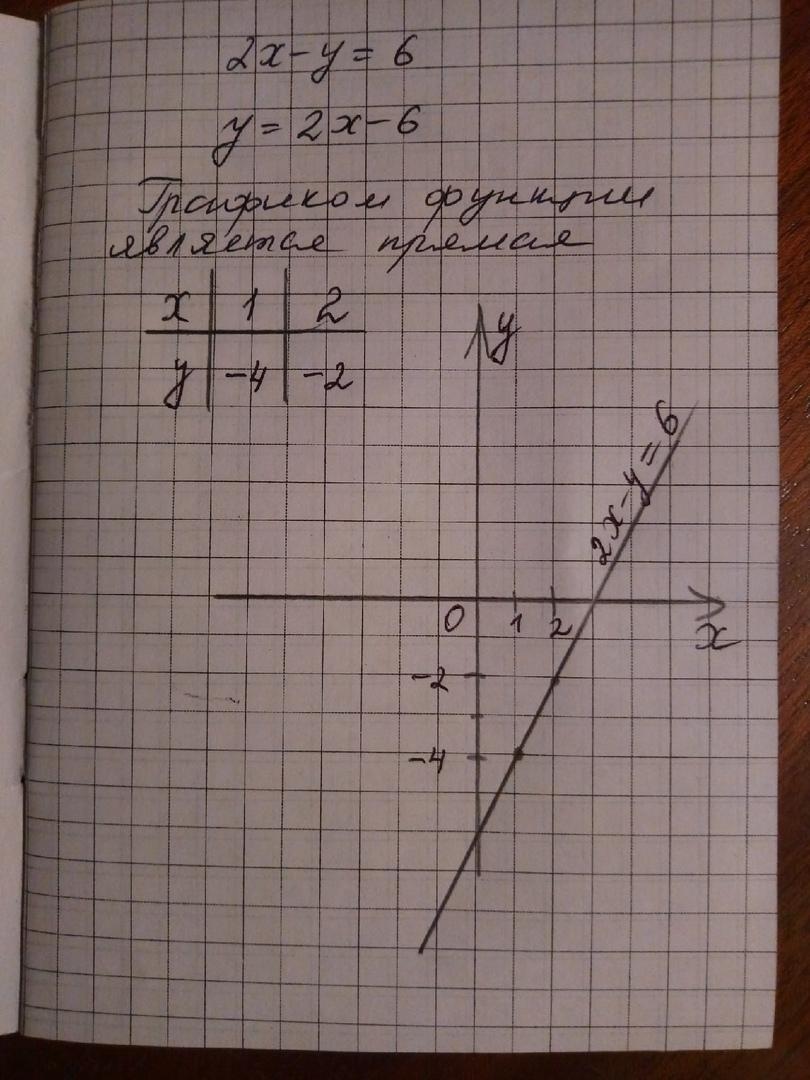 2x-y=6
y=2x-6
Графиком функции
является прямая
x 1 2
y -4 -2
y
2x-y=6
0 1 2
x
-2
-4